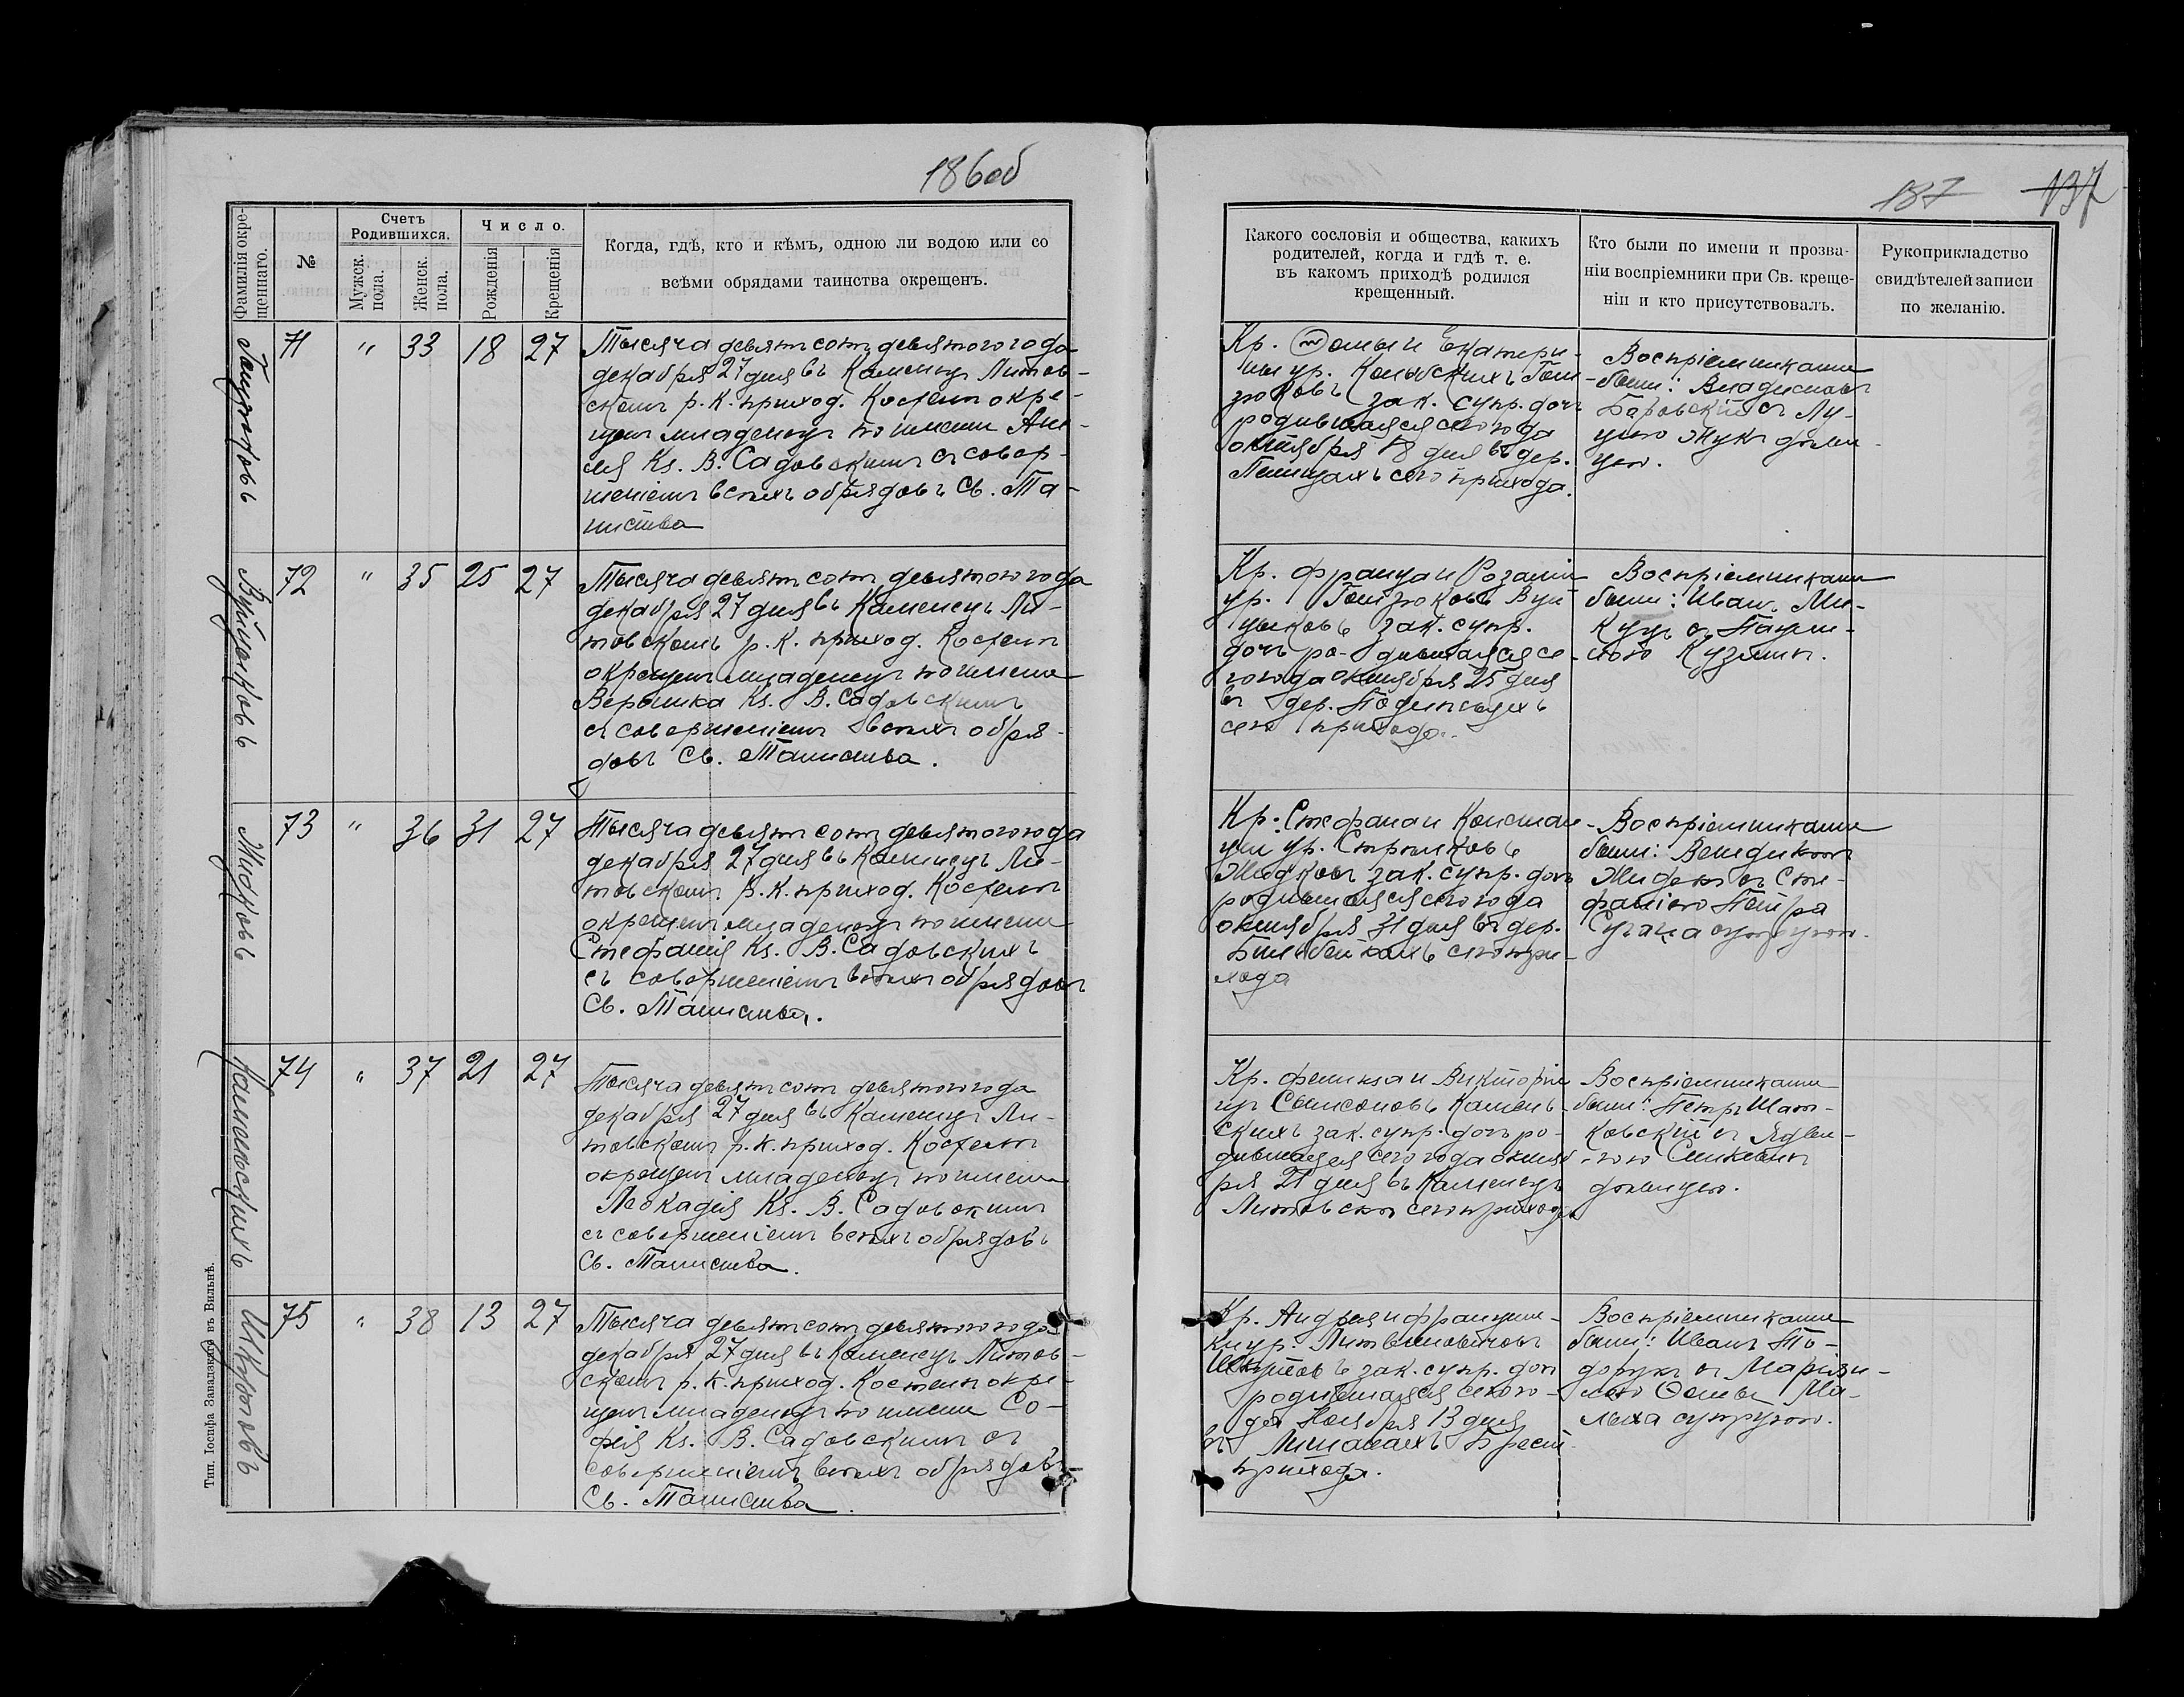 186об
Фамилія окре-
щеннаго.
№
Счетъ
Родившихся.
Мужск.
пола.
Женск.
пола.
Число.
Рожденія
Крещенія
Когда, гдѣ, кто и кѣмъ, одною ли водою или со
всѣми обрядами таинства окрещенъ.
71
"
33
18
27
Тысяча девятсот девятого года
декабря 27 дня въ Каменцъ Литов-
скомъ р. К. приход. Костелѣ окре-
щенъ младенецъ по имени
Ks. В. Садовскимъ съ совер-
шеніемъ всѣхъ обрядовъ Св. Та-
инства
Вуйциковъ
72
"
35
25
27
Тысяча девятсот девятого года
декабря 27 дня въ Каменецъ Ли-
товскомъ р. К. приход. Костелѣ
окрещенъ младенецъ по имени
Вероника Ks. В. Садовскимъ
съ совершеніемъ всѣхъ обря-
довъ Св. Таинства.
Жидковъ
73
"
36
31
27
Тысяча девятсот девятого года
декабря 27 дня въ Каменецъ Ли-
товскомъ р. К. приход. Костелѣ
окрещенъ младенецъ по имени
Стефанія Ks. В. Садовскихъ
съ совершеніемъ всѣхъ обрядовъ
Св. Таинства.
Каменскихъ
74
"
37
21
27
Тысяча девятсот девятого года
декабря 27 дня въ Каменецъ Ли-
товскомъ р. К. приход. Костелѣ
окрещенъ младенецъ по имени
Леокадія Ks. В. Садовскимъ
съ совершеніемъ всѣхъ обрядовъ
Св. Таинства.
75
"
38
13
27
Тысяча девятсот девятого года
декабря 27 дня въ Каменецъ Литов-
скомъ р. К. приход. Костелѣ окре-
щенъ младенецъ по имени Со-
фія Ks. В. Садовскимъ съ
совершеніемъ всѣхъ обрядовъ
Св. Таинства.
Тип. Іосифа Завадзкаго въ Вильнѣ.
187
137
Какого сословія и общества, какихъ
родителей, когда и гдѣ т. е.
въ какомъ приходѣ родился
крещенный.
Кто были по имени и прозва-
ніи воспріемники при Св. креще-
ніи и кто присутствовалъ.
Рукоприкладство
свидѣтелей записи
по желанію.
Кр. Ѳомы и Екатери-
ны ур.
зак. супр. дочь
родившаяся сего года
октября 18 дня въ дер.
сего прихода.
Воспріемниками
были: Владиславъ
Баровскій съ Лу-
цею Жукъ дѣви-
цею.
Кр. Франца и Розаліи
ур. Вуй-
циковъ зак. супр.
дочь ро- дившаяся се-
го года октября 25 дня
въ дер.
сего прихода.
Воспріемниками
были: Иван Ми-
съ Паули-
ною
Кр. Стефана и Констан-
ціи ур.
Жидковъ зак. супр. дочь
родившаяся сего года
октября 31 дня въ дер.
сего при-
хода
Воспріемниками
были: Венедиктъ
Жидокъ съ Сте-
фаніею Петра
супругою.
Кр. Феликса и Викторіи
ур Самсоновъ Камен-
скихъ зак. супр. дочь ро-
дившаяся сего года октяб-
ря 21 дня въ Каменецъ
Литовскъ сего прихода
Воспріемниками
были: Петръ Шат-
ковскій съ Ядви-
гою
дѣвицею.
Кр. Андрея и Францис-
ки ур. Литвиновичовъ
зак. супр. дочь
родившаяся сего го-
да Ноября 13 дня
въ Брест.
прихода.
Воспріемниками
были: Иванъ То-
дорукъ съ
Ѳомы Ми-
супругою.